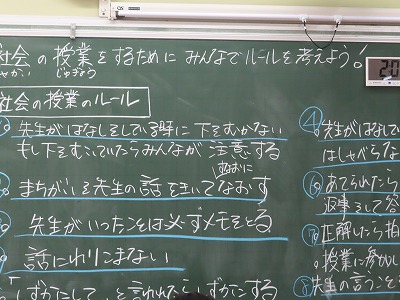 社会の授業をするためにみんなでルールを考えよう!
しゃかい じゅぎょう
社会の授業のルール
先生がはなしをしている時に下をむかない
もし下をむいていたらみんなが注意する
まちがいを先生の話を
なおす
先生がいったことは必ずメモをとる
話にわりこまない
「しずかにして」と言われたらしずかにする
④先生がはなして
はしゃべらな
⑥あてられたら
返事をして答
⑦正解したら拍
授業に参か
⑧先生の言うこと